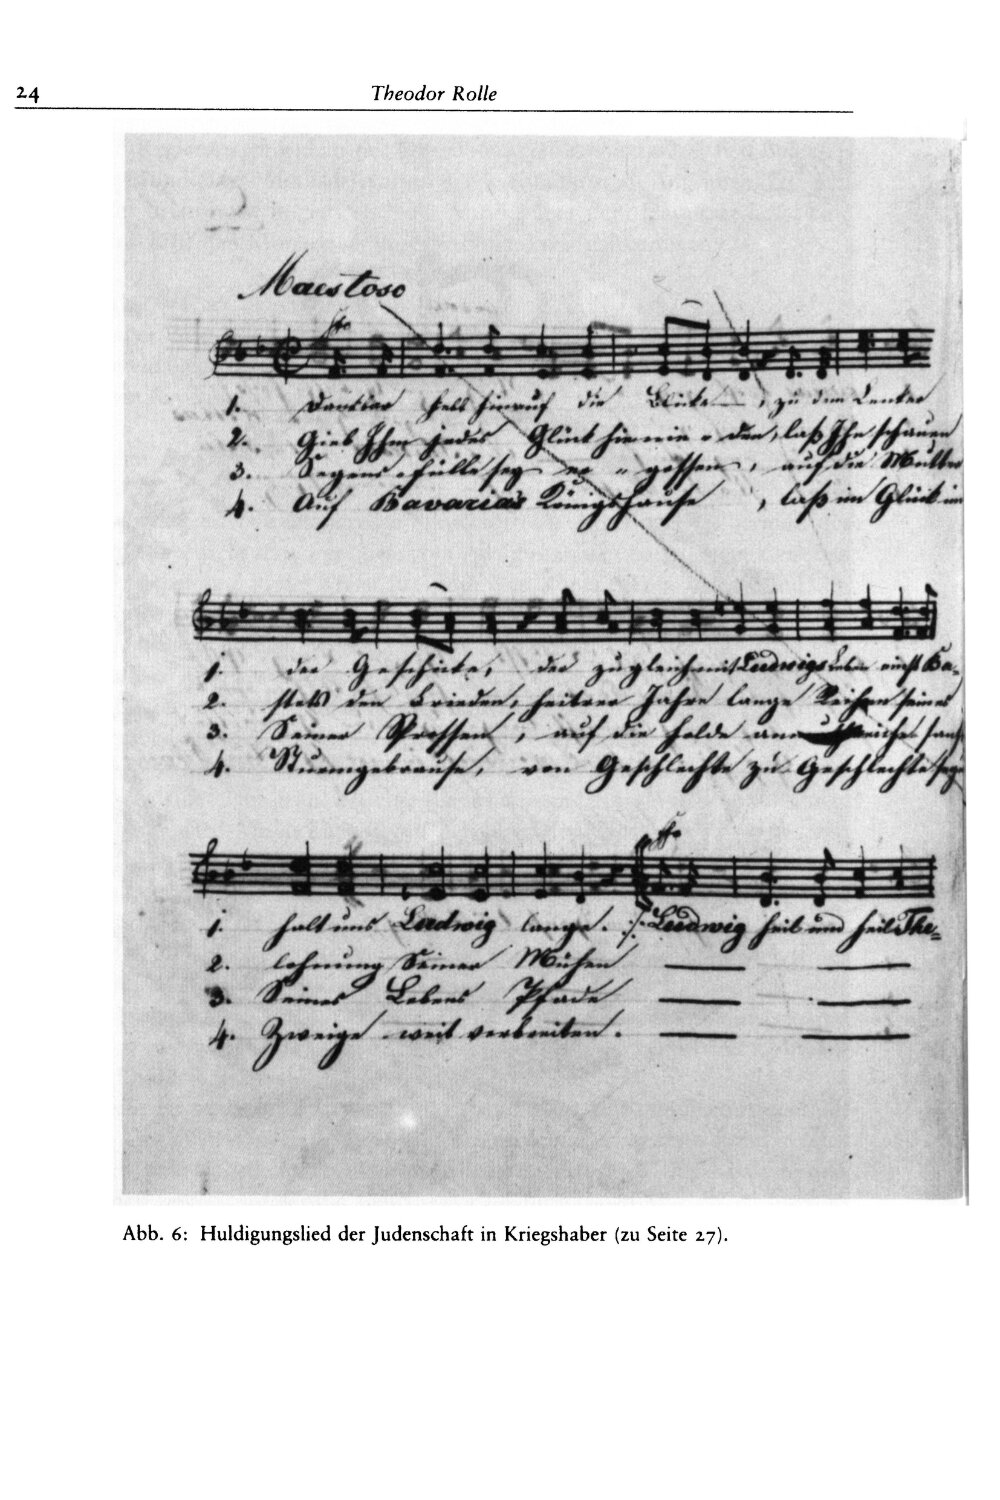 24
Theodor Rolle
Maestoso
1. Dankbar hebt hinauf die Blicke, zu dem Lenker
2. Gieb Ihm jedes Glück hienieden, laß Ihn schauen
3. Segensfülle sey er=gossen, auf die Mutter
4. Auf Bavaria's Königshause, laß im Glück im
1. der Geschicke, der zugleich mit Ludwigs Leben
2. stets den Frieden, heitrer Jahre lange Reihen seines
3. Seiner Sprossen, auf die holde
4. Sturmgebrause, von Geschlechte zu Geschlechte
1. halt uns Ludwig lange. :/: Ludwig heil und heil The=
2. lohnung Seiner Mühen
3. Seines Lebens Pfade
4. Zweige weit verbreiten.
Abb. 6: Huldigungslied der Judenschaft in Kriegshaber (zu Seite 27).